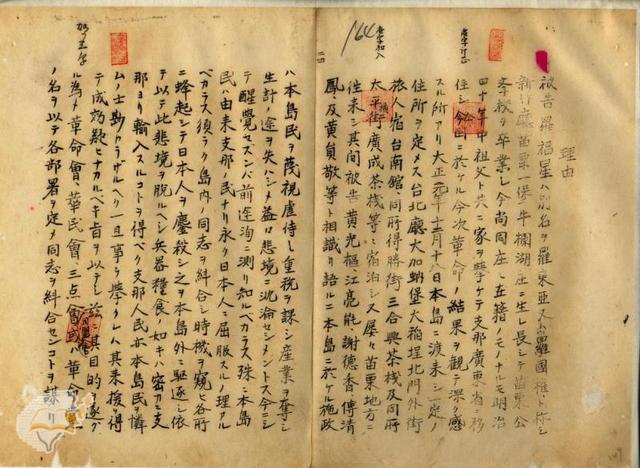 理由
被告羅福星ハ別名ヲ羅東亞又ハ羅國權ト称シ
新竹廳苗栗一堡牛欄湖庄ニ生レ長シテ苗栗公
学校ヲ卒業シ今尚同庄ニ在籍ノモノナル明治
四十年中祖父ト共ニ家ヲ挙ケテ支那廣東省ニ移
住シ今回ニ於ケル今次革命ノ結果ヲ観テ深ク感
スル所アリ大正元年十二月十八日本島ニ渡来シ一定ノ
住所ヲ定メス台北廳大加蚋堡大稲埕北門外街
旅人宿台南館、同所得勝街三合興茶桟及同所
太平横街廣成茶桟等ニ宿泊シ又屡々苗栗地方ニ
往来シ其間被告黄光樞、江亮能、謝德香、傅清
鳳及黄員敬等ト相識リ語ルニ本島ニ於ケル施政
ハ本島民ヲ蔑視虐待シ重税ヲ課シ産業ヲ奪ヒ
生計ノ途ヲ失ハシメ益々悲境ニ沈淪センメントス今ニシ
テ醒覚セスンハ前途洵ニ測リ知ルベカラス殊ニ本島
民ハ由来支那ノ民ナリ永ク日本人ニ屈服スルノ理アル
ベカラス須ラク島内ノ同志ヲ糾合シ時機ヲ窺ヒ各所
ニ蜂起シテ日本人ヲ鏖殺シ之ヲ本島外ニ駆逐シ依
テ以テ此悲境ヲ脱ルヘシ兵器糧食ノ如キハ密カニ支
那ヨリ輸入スルコトヲ得ベク支那人民亦本島民ヲ憐
ムノ士尠カラザルヘク一旦事ヲ挙クレハ其来援ヲ得
テ成功疑ヒナカルベキ旨ヲ以テシ茲ニ其目的ヲ遂ケン
為メ革命會、華民會、三点會或ハ革命黨
ノ名ヲ以テ各部署ヲ定メ同志ヲ糾合センコトヲ謀リ
164